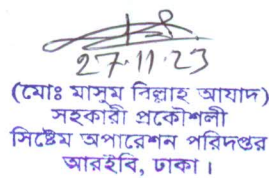 27.11.23
(মোঃ মাসুম বিল্লাহ আযাদ)
সহকারী প্রকৌশলী
সিষ্টেম অপারেশন পরিদপ্তর
আরইবি, ঢাকা।